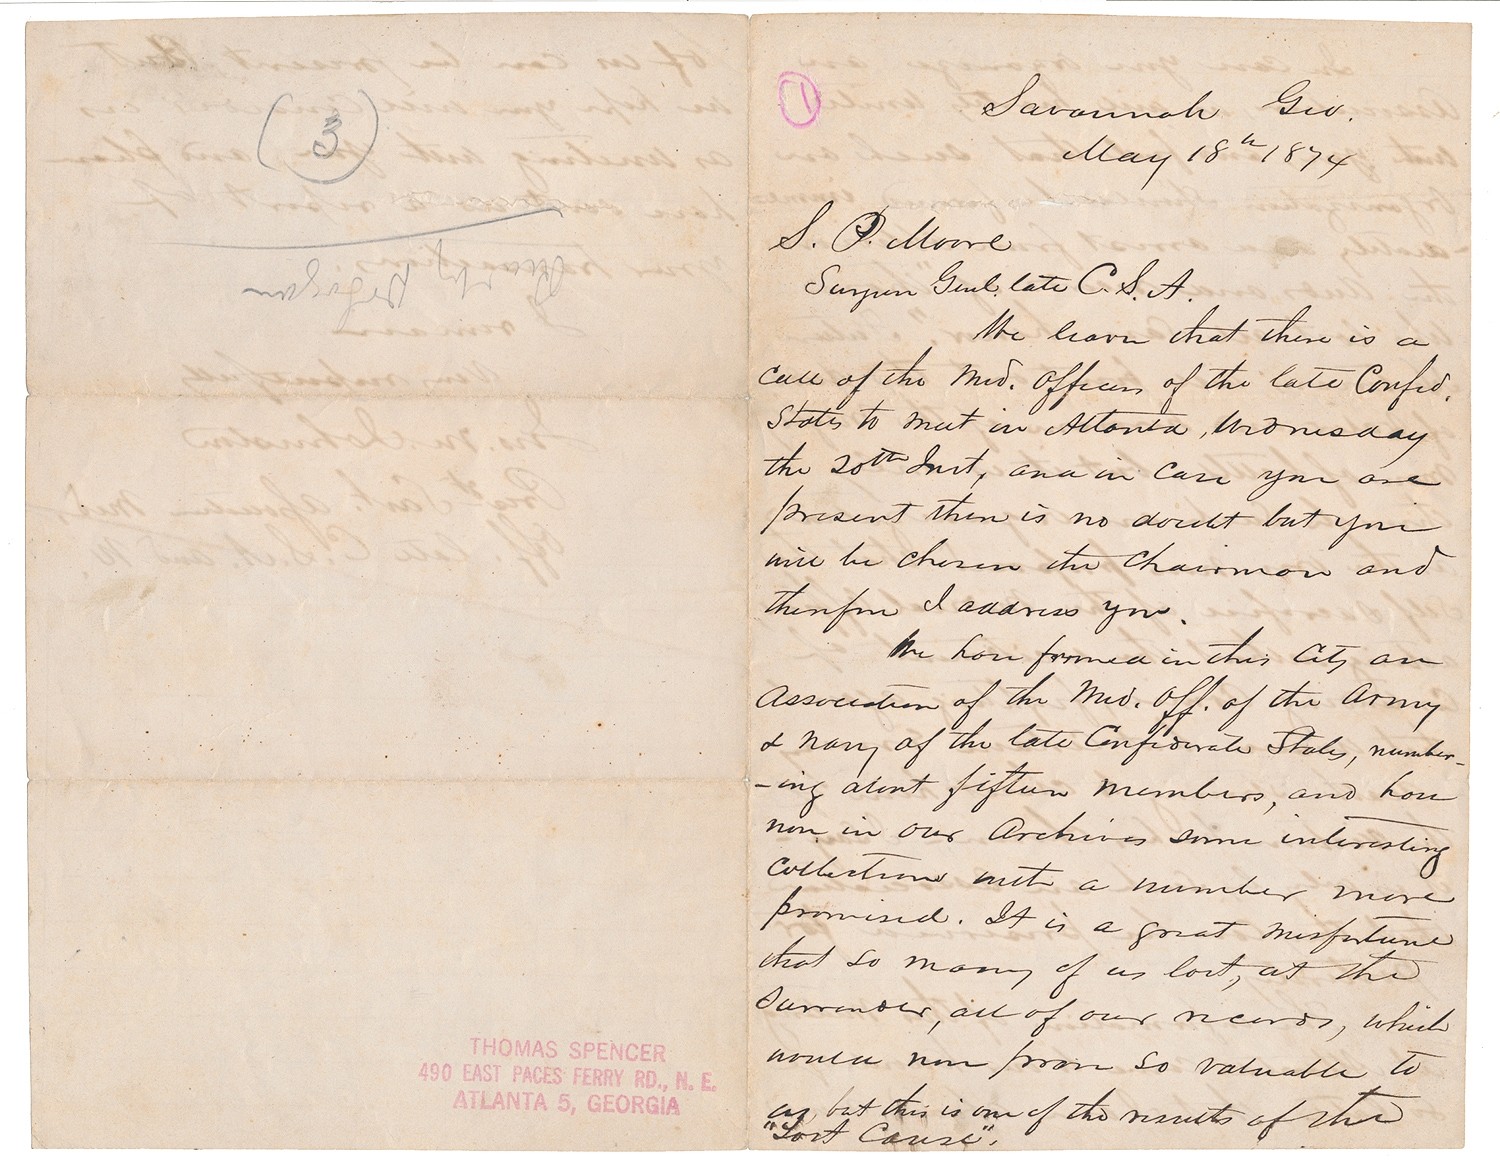 (3)
THOMAS SPENCER
490 EAST PACES FERRY RD., N. E.
ATLANTA 5, GEORGIA
1
Savannah Geo.
May 18th 1874
S. P. Moore
Surgeon Genl. late C. S. A.
We learn that there is a
call of the Med. Officers of the late Confed.
States to meet in Atlanta, Wednesday
the 20th Inst, and in case you are
present there is no doubt but you
will be chosen the Chairman and
therefore I address you.
We have formed in this City an
Association of the Med. Off. of the Army
& Navy of the late Confederate States, number-
-ing about fifteen members, and have
now in our Archives some interesting
collections with a number more
promised. It is a great misfortune
that so many of us lost, at the
Surrender, all of our records, which
would now prove so valuable to
us, but this is one of the results of the
"Lost Cause".